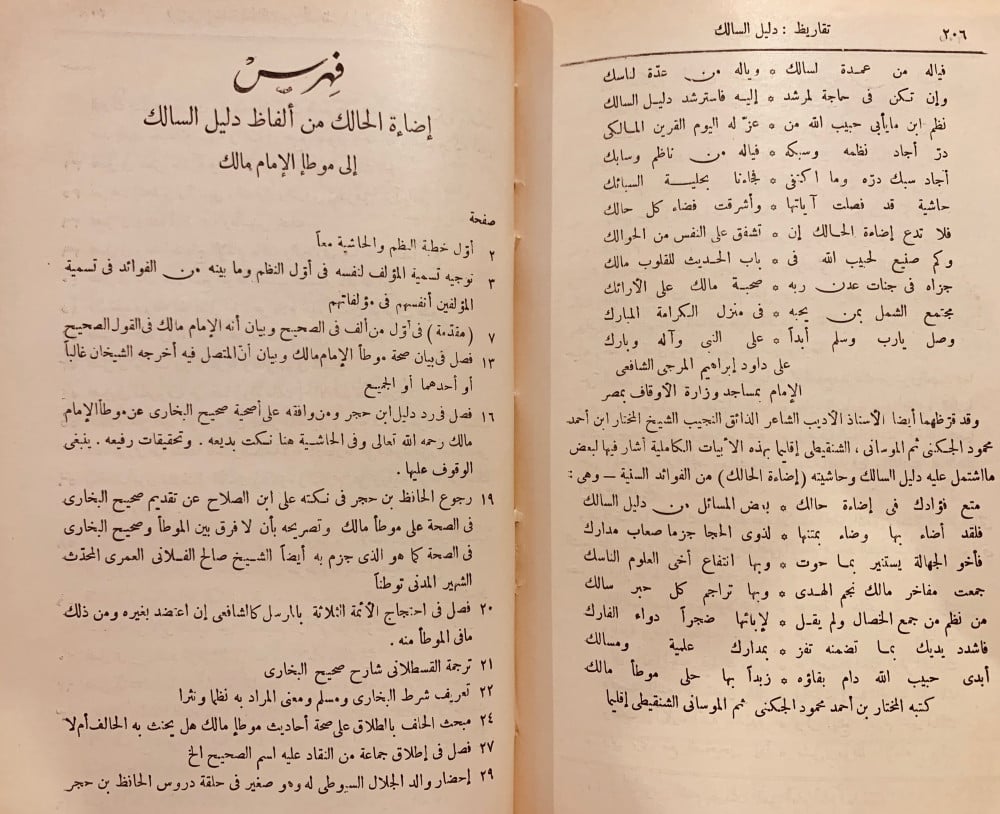 ٢٠٦ تقاريظ : دليل السالك
فياله من عمدة لسالك * وياله من عدّة لناسك
وإن تكن فى حاجة لمرشد * إليه فاسترشد دليل السالك
نظم ابن مايأبى حبيب الله من * عزّ له اليوم القرين المالكى
درّ أجاد نظمه وسبكه * فياله من ناظم وسابك
أجاد سبك درّه وما اكتفى * فجاءنا بحلية السبائك
حاشية قد فصلت آياتها * وأشرقت فضاء كل حالك
فلا تدع إضاءة الحالك إن * تشفق على النفس من الحوالك
وكم صنيع لحبيب الله فى * باب الحديث للقلوب مالك
جزاه فى جنات عدن ربه * صحبة مالك على الأرائك
مجتمع الشمل بمن يحبه * فى منزل الكرامة المبارك
وصل يارب وسلم أبداً * على النبى وآله وبارك
على داود إبراهيم المرجى الشافعى
الإمام بمساجد وزارة الأوقاف بمصر
وقد قرّظهما أيضا الأستاذ الأديب الشاعر الذائق النجيب الشيخ المختار ابن أحمد
محمود الجكنى ثم الموسانى ، الشنقيطى إقليما بهذه الأبيات الكاملية أشار فيها لبعض
مااشتمل عليه دليل السالك وحاشيته (إضاءة الحالك) من الفوائد السنية – وهى :
متع فؤادك فى إضاءة حالك * بعض المسائل من دليل السالك
فلقد أضاء بها وضاء بمتنها * لذوى الحجا جزما صعاب مدارك
فأخو الجهالة يستنير بما حوت * وبها انتفاع أخى العلوم الناسك
جمعت مفاخر مالك نجم الهدى * وبها تراجم كل حبر سالك
من نظم من جمع الخصال ولم يقل * لإبائها ضجراً دواء الفارك
فاشدد يديك بما تضمنه تفز * بمدارك علمية ومسالك
أبدى حبيب الله دام بقاؤه * زبداً بها حلى موطأ مالك
كتبه المختار بن أحمد محمود الجكنى ثم الموسانى الشنقيطى إقليما
فهرس
إضاءة الحالك من ألفاظ دليل السالك
إلى موطإ الإمام مالك
صفحة
٢ أوّل خطبة النظم والحاشية معاً
٣ توجيه تسمية المؤلف لنفسه فى أوّل النظم وما بينه من الفوائد فى تسمية
المؤلفين أنفسهم فى مؤلفاتهم
٧ (مقدّمة) فى أوّل من ألف فى الصحيح وبيان أنه الإمام مالك فى القول الصحيح
١٣ فصل فى بيان صحة موطأ الإمام مالك وبيان أنّ المتصل فيه أخرجه الشيخان غالباً
أو أحدهما أو الجميع
١٦ فصل فى رد دليل ابن حجر ومن وافقه على أصحية صحيح البخارى عن موطأ الإمام
مالك رحمه الله تعالى وفى الحاشية هنا نكت بديعه . وتحقيقات رفيعه . ينبغى
الوقوف عليها .
١٩ رجوع الحافظ بن حجر فى نكته على ابن الصلاح عن تقديم صحيح البخارى
فى الصحة على موطأ مالك وتصريحه بأن لا فرق بين الموطأ وصحيح البخارى
فى الصحة كما هو الذى جزم به أيضاً الشيخ صالح الفلانى العمرى المحدّث
الشهير المدنى توطناً
٢٠ فصل فى احتجاج الأئمة الثلاثة بالمرسل كالشافعى إن اعتضد بغيره ومن ذلك
مافى الموطأ منه .
٢١ ترجمة القسطلانى شارح صحيح البخارى
٢٢ تعريف شرط البخارى ومسلم ومعنى المراد به نظما ونثرا
٢٤ مبحث الحلف بالطلاق على صحة أحاديث موطإ مالك هل يحنث به الحالف أم لا
٢٧ فصل فى إطلاق جماعة من النقاد عليه اسم الصحيح الخ
٢٩ إحضار والد الجلال السيوطى له وهو صغير فى حلقة دروس الحافظ بن حجر